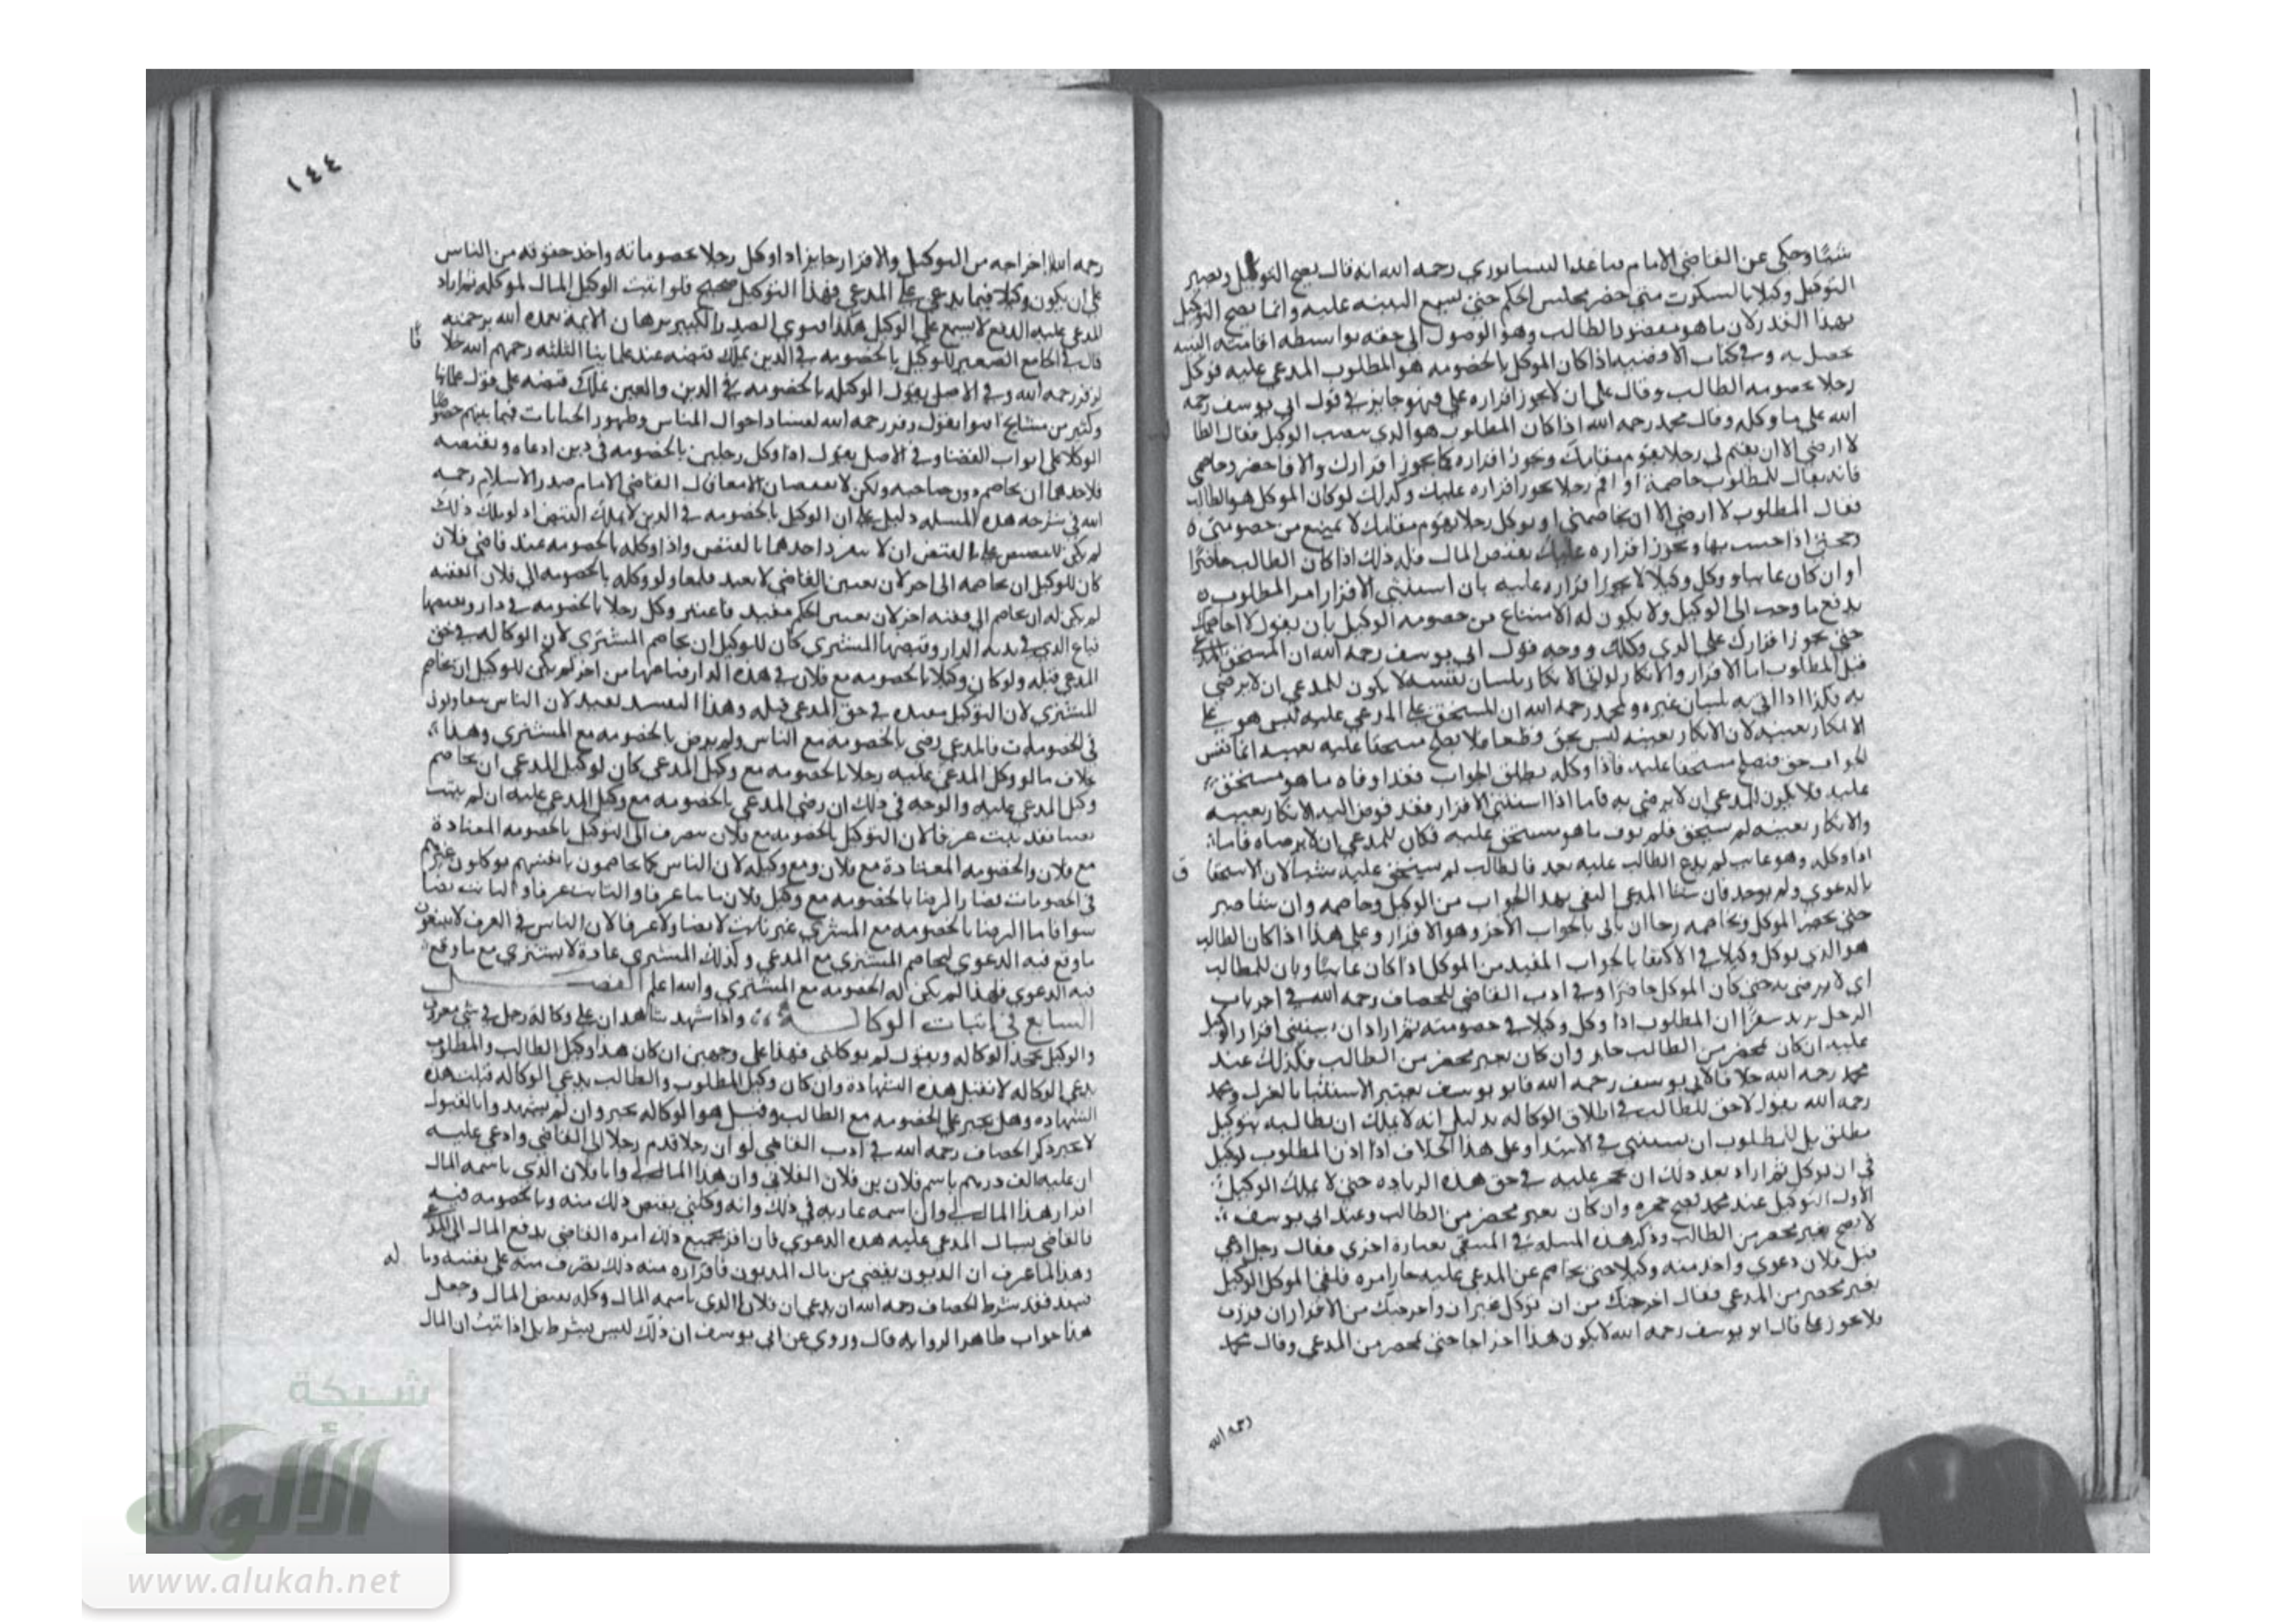 شيئا وحكى عن القاضي الامام صاعد النيسابوري رحمه الله انه قال يصح التوكيل ويصير
التوكيل وكيلا بالسكوت متى حضر مجلس الحكم حتى يسمع البينه عليه وانما يصح التوكيل
بهذا القدر لان ما هو مقصود الطالب وهو الوصول الى حقه بواسطه اقامته البينه
يحصل به وفي كتاب الاقضيه اذا كان الموكل بالخصومه هو المطلوب المدعي عليه فوكل
رجلا بخصومه الطالب وقال على ان لا يجوز اقراره علي فهو جايز في قول ابي يوسف رحمه
الله على ما وكله وقال محمد رحمه الله اذا كان المطلوب هو الذي نصب الوكيل فقال الطا
لا ارضى الا ان يقيم لي رجلا يقوم مقامك ويجوز اقراره كما يجوز اقرارك والا فاحضر وخاصمي
فانه يقال للمطلوب خاصمه او اقم رجلا يجوز اقراره عليك وكذلك لو كان الموكل هو الطالب
فقال المطلوب لا ارضى الا ان تخاصمني او توكل رجلا يقوم مقامك لا يمتنع من خصومتي
وحجتي اذا حسب بها ويجوز اقراره عليك بقبض المال فله ذلك اذا كان الطالب حاضرا
او ان كان غايبا ووكل وكيلا لا يجوز اقراره عليه بان استثنى الاقرار امر المطلوب
بدفع ما وجب الى الوكيل ولا يكون له الامتناع من خصومه الوكيل بان يقول لا اخاصمك
حتى يجوز اقرارك على الذي وكلك ووجه قول ابي يوسف رحمه الله ان المستحق
قبل المطلوب اما الاقرار والانكار لو اتى الانكار بلسان نفسه لا يكون للمدعي ان لا يرضى
به فكذا اذا اتى به بلسان غيره ولمحمد رحمه الله ان المستحق على المدعي عليه ليس هو
الانكار بعينه لان الانكار بعينه ليس بحق قطعا فلا يصلح مستحقا عليه بعينه انما نفس
الجواب حق فيصلح مستحقا عليه فاذا وكله بطلق الجواب فقد اوفاه ما هو مستحق
عليه فلا يكون للمدعي ان لا يرضى به فاما اذا استثنى الاقرار فقد فوض اليه الانكار بعينه
والانكار بعينه لم يستحق فلم يوف ما هو مستحق عليه فكان للمدعي ان لا يرضاه فاما
اذا وكله وهو غايب لم يدع الطالب عليه بعد فالطالب لم يستحق عليه شيئا لان الاستحقا ق
بالدعوي ولم يوجد فان شا المدعي اكتفى بهذا الجواب من الوكيل وخاصمه وان شا صبر
حتى يحضر الموكل ويخاصمه رجا ان ياتي بالجواب الاخر وهو الاقرار وعلى هذا اذا كان الطالب
هو الذي يوكل وكيلا في الاكتفا بالجواب المفيد من الموكل اذا كان غايبا وبان للمطالب
اي لا يرضى به حتى كان الموكل حاضرا وفي ادب القاضي للخصاف رحمه الله في اخر باب
الرجل يريد سفرا ان المطلوب اذا وكل وكيلا في خصومته ثم اراد ان يستثنى اقرار الوكيل
عليه ان كان بمحضر من الطالب جاز وان كان بغير محضر من الطالب فكذلك عند
محمد رحمه الله خلافا لابي يوسف رحمه الله فابو يوسف يعتبر الاستثنا بالعزل ومحمد
رحمه الله يقول لا حق للطالب في اطلاق الوكاله بدليل انه لا يملك ان يطالبه بتوكيل
مطلق بل للمطلوب ان يستثنى في الابتدا وعلى هذا الخلاف اذا اذن المطلوب لوكيل
في ان يوكل ثم اراد بعد ذلك ان يحجر عليه في حق هذه الزياده حتى لا يملك الوكيل
الاول التوكيل عند محمد يصح حجره وان كان بغير محضر من الطالب وعند ابي يوسف
لا يصح بغير محضر من الطالب وذكر هذه المسله في المنتقى بعبارة اخرى فقال رجل ادعى
قبل فلان دعوي واخذ منه وكيلا حتى يخاصم عن المدعي عليه جاز امره فلقي الموكل الوكيل
بغير محضر من المدعي فقال اخرجتك من ان توكل غيرك واخرجتك من الاقرار ان اقررت
فلا يجوز علي قال ابو يوسف رحمه الله لا يكون هذا اخراجا حتى بمحضر من المدعي وقال محمد
رحمه الله
١٤٤
رحمه الله اخراجه من التوكيل والاقرار جايز اذا وكل رجلا بخصوماته واخذ حقوقه من الناس
على ان يكون وكيلا فيما يدعي على المدعي فهذا التوكيل صحيح فلو اثبت الوكيل المال لموكله ثم اراد
المدعي عليه الدفع لا يسمع على الوكيل هكذا فتوي الصدر الكبير برهان الايمة تغمده الله برحمته
قال في الجامع الصغير الوكيل بالخصومه في الدين يملك قبضه عند علماينا الثلثه رحمهم الله خلا فا
لزفر رحمه الله وفي الاصل يقول الوكيل بالخصومه في الدين والعين يملك قبضه على قول علماينا
وكثير من مشايخنا افتوا بقول زفر رحمه الله لفساد احوال الناس وظهور الخيانات فيما بينهم خصوصا
الوكلا على ابواب القضا وفي الاصل يقول اذا وكل رجلين بالخصومه في دين ادعاه وبقبضه
فلاحدهما ان يخاصم دون صاحبه ولكن لا يقبضان الا معا قال القاضي الامام صدر الاسلام رحمه
الله في شرحه هذه المسله دليل على ان الوكيل بالخصومه في الدين لا يملك القبض اذ لو ملك ذلك
لم يكن للتنصيص على القبض ان لا ينفرد احدهما بالقبض واذا وكله بالخصومه عند قاضي فلان
كان للوكيل ان يخاصمه الى اخر لان تعيين القاضي لا يفيد قطعا ولو وكله بالخصومه الى فلان الفقيه
لم يكن له ان يخاصم الى فقيه اخر لان تعيين الحكم مفيد فاعتبر وكل رجلا بالخصومه في دار وبقبضها
فباع الذي في يديه الدار وقبضها المشتري كان للوكيل ان يخاصم المشتري لان الوكاله في حق
المدعي قبله ولو كان وكيلا بالخصومه مع فلان في هذه الدار فباعها من اخر لم يكن للوكيل ان يخاصم
المشتري لان التوكيل مقيد في حق المدعي قبله وهذا التقييد يفيد لان الناس يتفاوتون
في الخصومات فالمدعي رضي بالخصومه مع الناس ولم يرض بالخصومه مع المشتري وهذا
بخلاف ما لو وكل المدعي عليه رجلا بالخصومه مع وكيل المدعي كان لوكيل المدعي ان يخاصم
وكيل المدعي عليه والوجه في ذلك ان رضى المدعي بالخصومه مع وكيل المدعي عليه ان لم يثبت
نصا فقد ثبت عرفا لان التوكيل بالخصومه مع فلان ينصرف الى التوكيل بالخصومه المعتادة
مع فلان والخصومه المعتادة مع فلان ومع وكيله لان الناس كما يخاصمون بانفسهم يوكلون غيرهم
في الخصومات فصار الرضا بالخصومه مع وكيل فلان ثابتا عرفا والثابت عرفا والثابت نصا
سوا فاما الرضا بالخصومه مع المشتري غير ثابت لا نصا ولا عرفا لان الناس في العرف لا يبيعون
ما وقع فيه الدعوي ليخاصم المشتري مع المدعي وكذلك المشتري عادة لا يشتري مع ما وقع
فيه الدعوي فلهذا لم يكن له الخصومه مع المشتري والله اعلم الفصل
السابع في اثبات الوكالة واذا شهد شاهدان على وكالة رجل في شي معروف
والوكيل يجحد الوكاله ويقول لم يوكلني فهذا على وجهين ان كان هذا وكيل الطالب والمطلوب
يدعي الوكاله لا تقبل هذه الشهادة وان كان وكيل المطلوب والطالب يدعي الوكاله قبلت هذه
الشهاده وهل يجبر على الخصومه مع الطالب وقبل هو الوكاله يجبر وان لم يشهدوا بالقبول
لا يجبر ذكر الخصاف رحمه الله في ادب القاضي لو ان رجلا قدم رجلا الى القاضي وادعى عليه
ان عليه الف درهم باسم فلان بن فلان الفلاني وان هذا المال لي وانا فلان الذي باسمه المال
اقرار هذا المال لي وان اسمه عاريه في ذلك وانه وكلني بقبض ذلك منه وبالخصومه فيه
فالقاضي يسال المدعي عليه هذه الدعوي فان اقر بجميع ذلك امره القاضي بدفع المال الى المدعي
وهذا لما عرف ان الديون يقضى من مال المديون فاقراره منه ذلك تصرف منه على نفسه وما له
فينفذ فقد شرط الخصاف رحمه الله ان يدعي ان فلان الذي باسمه المال وكله بقبض المال وجعل
هذا جواب ظاهر الروايه قال وروي عن ابي يوسف ان ذلك ليس بشرط بل اذا ثبت ان المال
شبكة
الألوكة
www.alukah.net